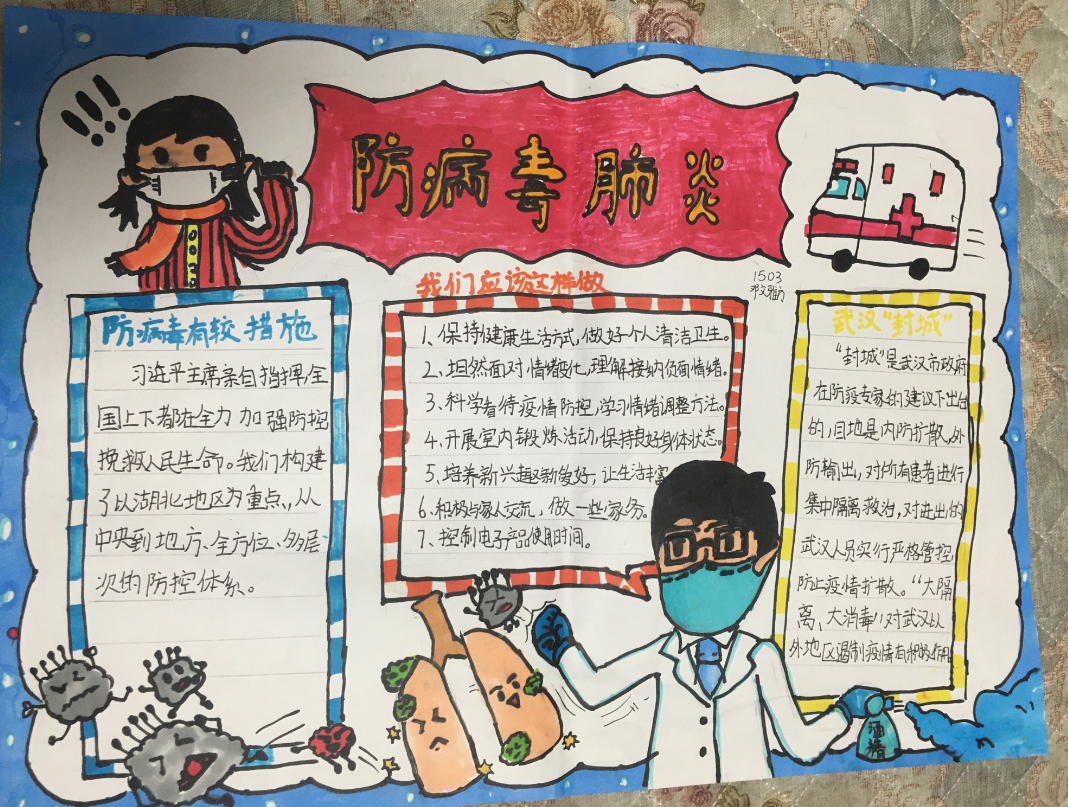 防病毒肺炎
我们应该这样做
1503
防病毒有较措施
习近平主席亲自指挥,全
国上下都在全力加强防控
挽救人民生命。我们构建
了以湖北地区为重点,从
中央到地方、全方位、多层
次的防控体系。
1、保持健康生活方式,做好个人清洁卫生。
2、坦然面对情绪变化,理解接纳负面情绪。
3、科学看待疫情防控,学习情绪调整方法。
4、开展室内锻炼活动,保持良好身体状态。
5、培养新兴趣新爱好,让生活丰富
6、积极与家人交流,做一些家务。
7、控制电子产品使用时间。
武汉“封城”
“封城”是武汉市政府
在防疫专家的建议下出台
的,目地是内防扩散,外
防输出,对所有患者进行
集中隔离救治,对进出的
武汉人员实行严格管控
防止疫情扩散。“大隔
离、大消毒”对武汉以
外地区遏制疫情有积极作用
酒精